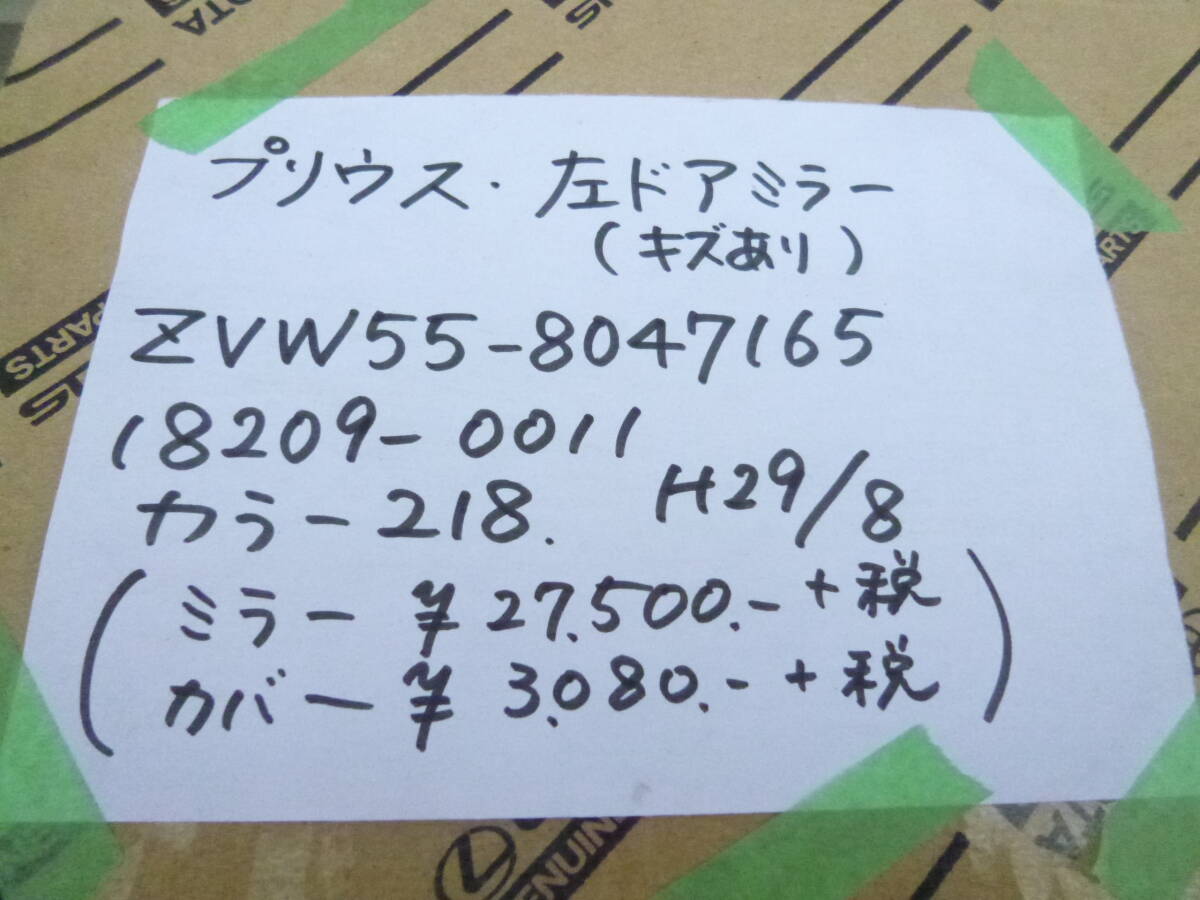 プリウス・左ドアミラー
(キズあり)
ZVW55-8047165
18209-0011
カラー218. H29/8
(ミラー ¥27,500.-+税
カバー ¥3,080.-+税)
PARTS